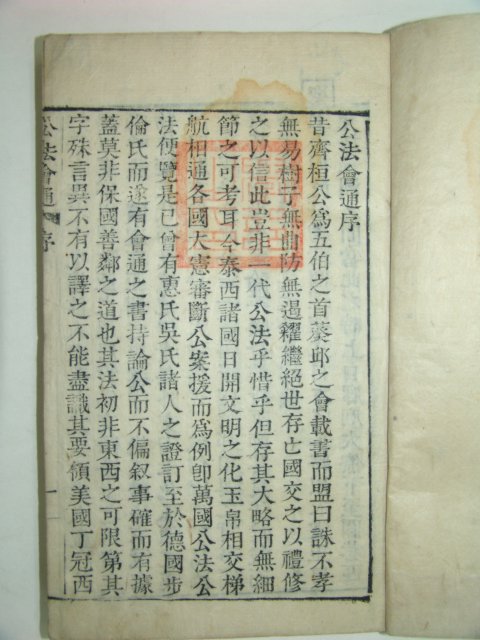 公法會通序
昔齊桓公爲五伯之首葵邱之會載書而盟曰誅不孝
無易樹子無曲防無遏糴繼絕世存亡國交之以禮修
之以信此豈非一代公法乎惜乎但存其大略而無細
節之可考耳今泰西諸國日開文明之化玉帛相交梯
航相通各國大憲審斷公案援而爲例卽萬國公法公
法便覽是已會有惠氏吳氏諸人之證訂至於德國步
倫氏而遂有會通之書持論公而不偏叙事確而有據
蓋莫非保國善鄰之道也其法初非東西之可限第其
字殊言異不有以譯之不能盡識其要領美國丁冠西
公法會通 序 一